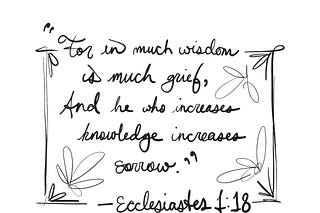 "For in much wisdom
is much grief,
And he who increases
knowledge increases
sorrow."
—Ecclesiastes 1:18